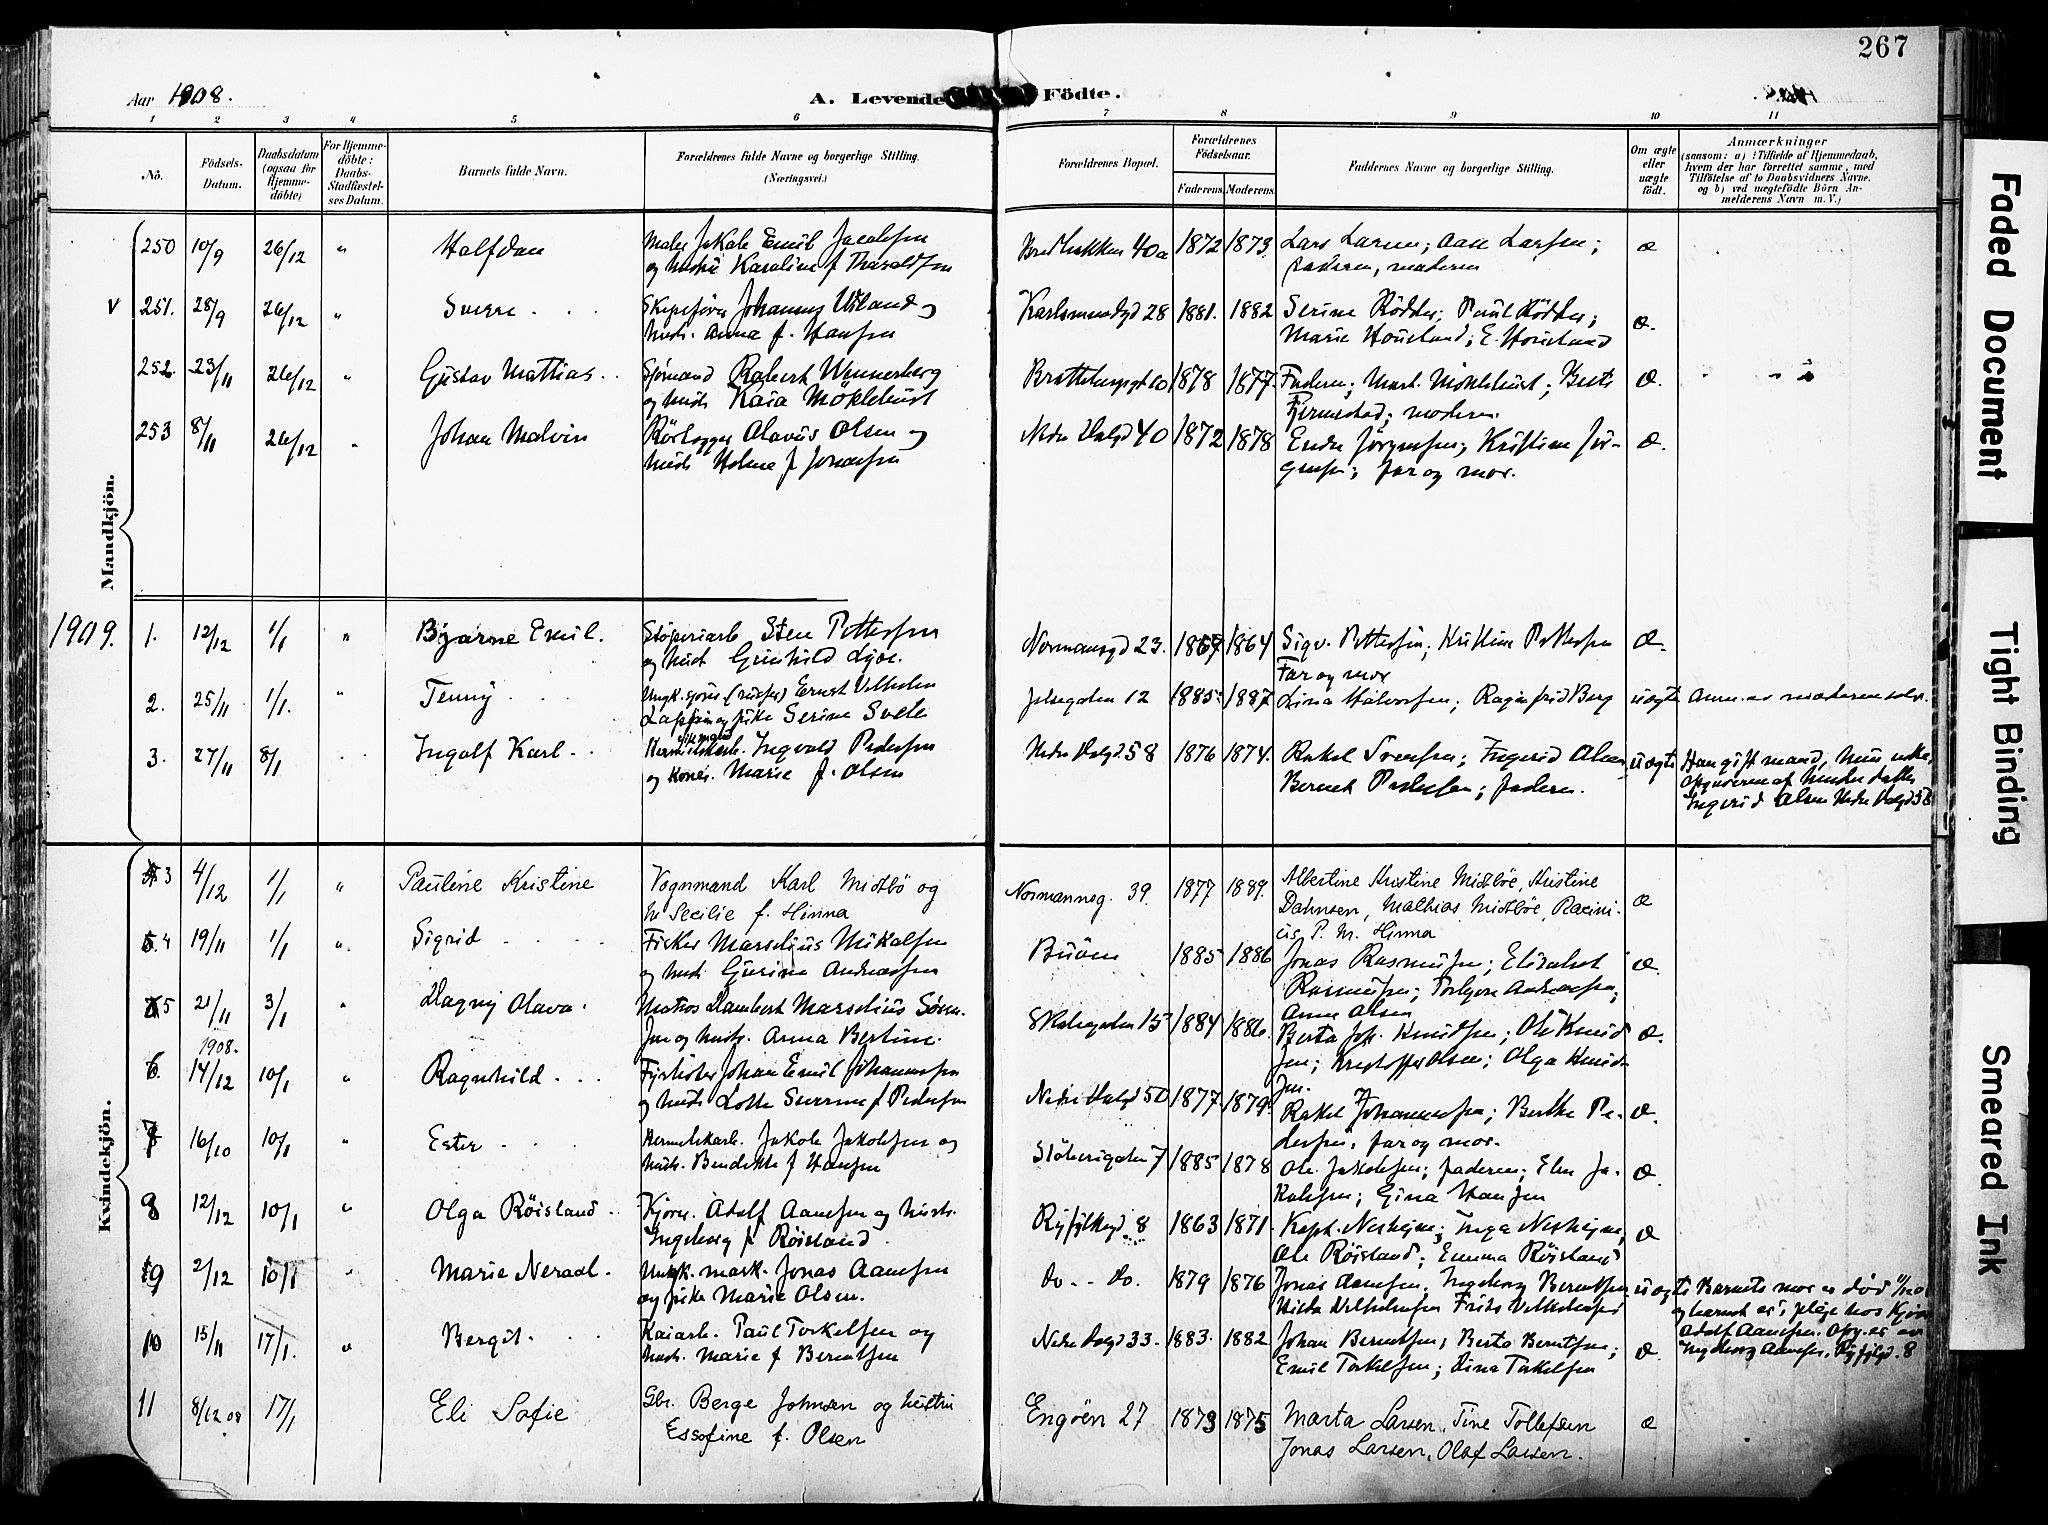 267
Aar 1908.
A. Levende Födte.
1 2 3 4 5 6 7 8 9 10 11
No.
Födsels-Datum.
Daabsdatum (ogsaa for Hjemme-döbte)
For Hjemme-döbte: Daabs-Stadfæstel-ses Datum.
Barnets fulde Navn.
Forældrenes fulde Navne og borgerlige Stilling. (Næringsvei.)
Forældrenes Bopæl.
Forældrenes Födselsaar.
Faderens. Moderens.
Faddernes Navne og borgerlige Stilling.
Om ægte eller uægte födt.
Anmærkninger
(saasom: a) i Tilfælde af Hjemmedaab,
hvem der har forrettet samme, med
Tilföielse af to Daabsvidners Navne,
og b) ved uægtefödte Börn An-
melderens Navn m. V.)
Mandkjön.
250 10/9 26/12 " Halfdan Maler Jakob Emil Jacobsen 40a 1872 1873. Lars Larsen; Aase Larsen; æ
og hustru Karoline f Tharaldsen faderen, moderen
V 251. 28/9 26/12 " Sverre Johannes og Karlsmindegd 28 1881. 1882 Serine Rödder; Paul Rödder; æ.
hust. Anna f. Hansen Marie Houeland; E. Houeland
252. 23/11 26/12 " Gustav Mattias Sjømand Robert Wennerberg 1878 1877. Faderen; Mart. Möklebust; Berte æ.
og hust. Kaia Möklebust moderen
253 8/11 26/12 " Johan Malvin Rörlegger Olavus Olsen og Nedre Dalgd 40 1872 1878 Endre Jörgensen; Kristine Jör- æ.
hust. Helene f Jonassen gensen; far og mor.
1909.
1. 12/12 1/1 " Bjarne Emil. Støperiarb Sten Pettersen Normansgd 23. 1867 1864 Sigv. Pettersen; Kristine Pettersen æ.
og hust Gunhild Lyse. Far og mor
2. 25/11 1/1. " Jenny Ungk. Ernst Vilhelm Jelsegaten 12 1885. 1887. Lina Halvorsen; Ragnfrid Berg uægte Anm. av moderen selv.
og pike Serine Svele
3. 27/11 8/1 Ingolf Karl Hermetikarb. Ingvald Pedersen Nedre Dalgd 58 1876 1874. Rakel Svensen; Ingerid Olsen uægte Han gift mand, hun enke,
og Kone. Marie f. Olsen Bernt Pedersen; faderen. opgivderen af hendes datter
Ingerid Olsen Nedre Dalgd 58
Kvindekjön.
3 4/12 1/1 " Pauline Kristine Vognmand Karl Midtbö og Normannsg. 39. 1877 1889. Albertine Kristine Midtböe, Kristine æ
h. Secilie f. Hinna Dahnsen, Mathias Midtböe, Racini-
us P. M. Hinna
4 19/11 1/1 " Sigrid Fisker Marselius Mikalsen Buöen 1885 1886 Jonas Rasmusen; Elisabet æ.
og hust. Gurine Andreassen Rasmusen; Torbjorn Andreassen;
Anna Olsen
5 21/11 3/1 " Dagny Olava. Matros Lambert Marselius Søren- Skolegaten 15 1884 1886. Berta Joh. Knudsen; Ole Knud æ.
sen og hust. Anna Bertine. sen; Kristoffer Olsen; Olga Knud-
sen.
1908.
6. 14/12 10/1 " Ragnhild Fyrböter Johan Emil Johannessen Nedre Dalgd 50 1877. 1879. Rakel Johannessen; Berthe Pe- æ.
og hust. Lotte Severine f Pedersen dersen, far og mor.
7 16/10 10/1 " Ester Hermetikarb. Jakob Jakobsen og Støberigaten 7 1885 1878 Ole Jakobsen; faderen; Elen Ja- æ.
hust. Bendikte f Hansen kobsen; Gina Hansen
8 12/12 10/1 " Olga Röisland. Kjörer. Adolf Aanesen og hust. Ryfylkegd 8 1863 1871 Kapt. Neshejm; Inga Neshejm; æ
Ingeborg f Röisland. Ole Röisland; Emma Röisland
9 2/12 10/1 " Marie Neradl. Ungk. mask. Jonas Aanesen do. - - do. 1879 1876 Jonas Aanesen, Ingeborg Berentsen uægte Barnets mor er död 11/12 08
og pike Marie Olsen. Hilda Vilhelmsen Frits Vilhelmsen og barnet er i pleje hos Kjörer
Adolf Aanesen. Opg. er av
Ingeborg Aanesen, Ryfylgd. 8
10 15/11 17/1. " Bergit. Kaiarb. Paul Torkelsen og Nedre Dalgd 33. 1883. 1882 Johan Berentsen; Berta Berentsen; æ.
hust. Marie f Berentsen Emil Torkelsen; Lina Torkelsen
11 8/12 08 17/1 Eli Sofie Gbr. Berge Johnsen og hustru Engöen 27 1873 1875 Marta Larsen. Tine Tollefsen æ
Essofine f. Olsen Jonas Larsen. Olaf Larsen.
Faded Document
Tight Binding
Smeared Ink